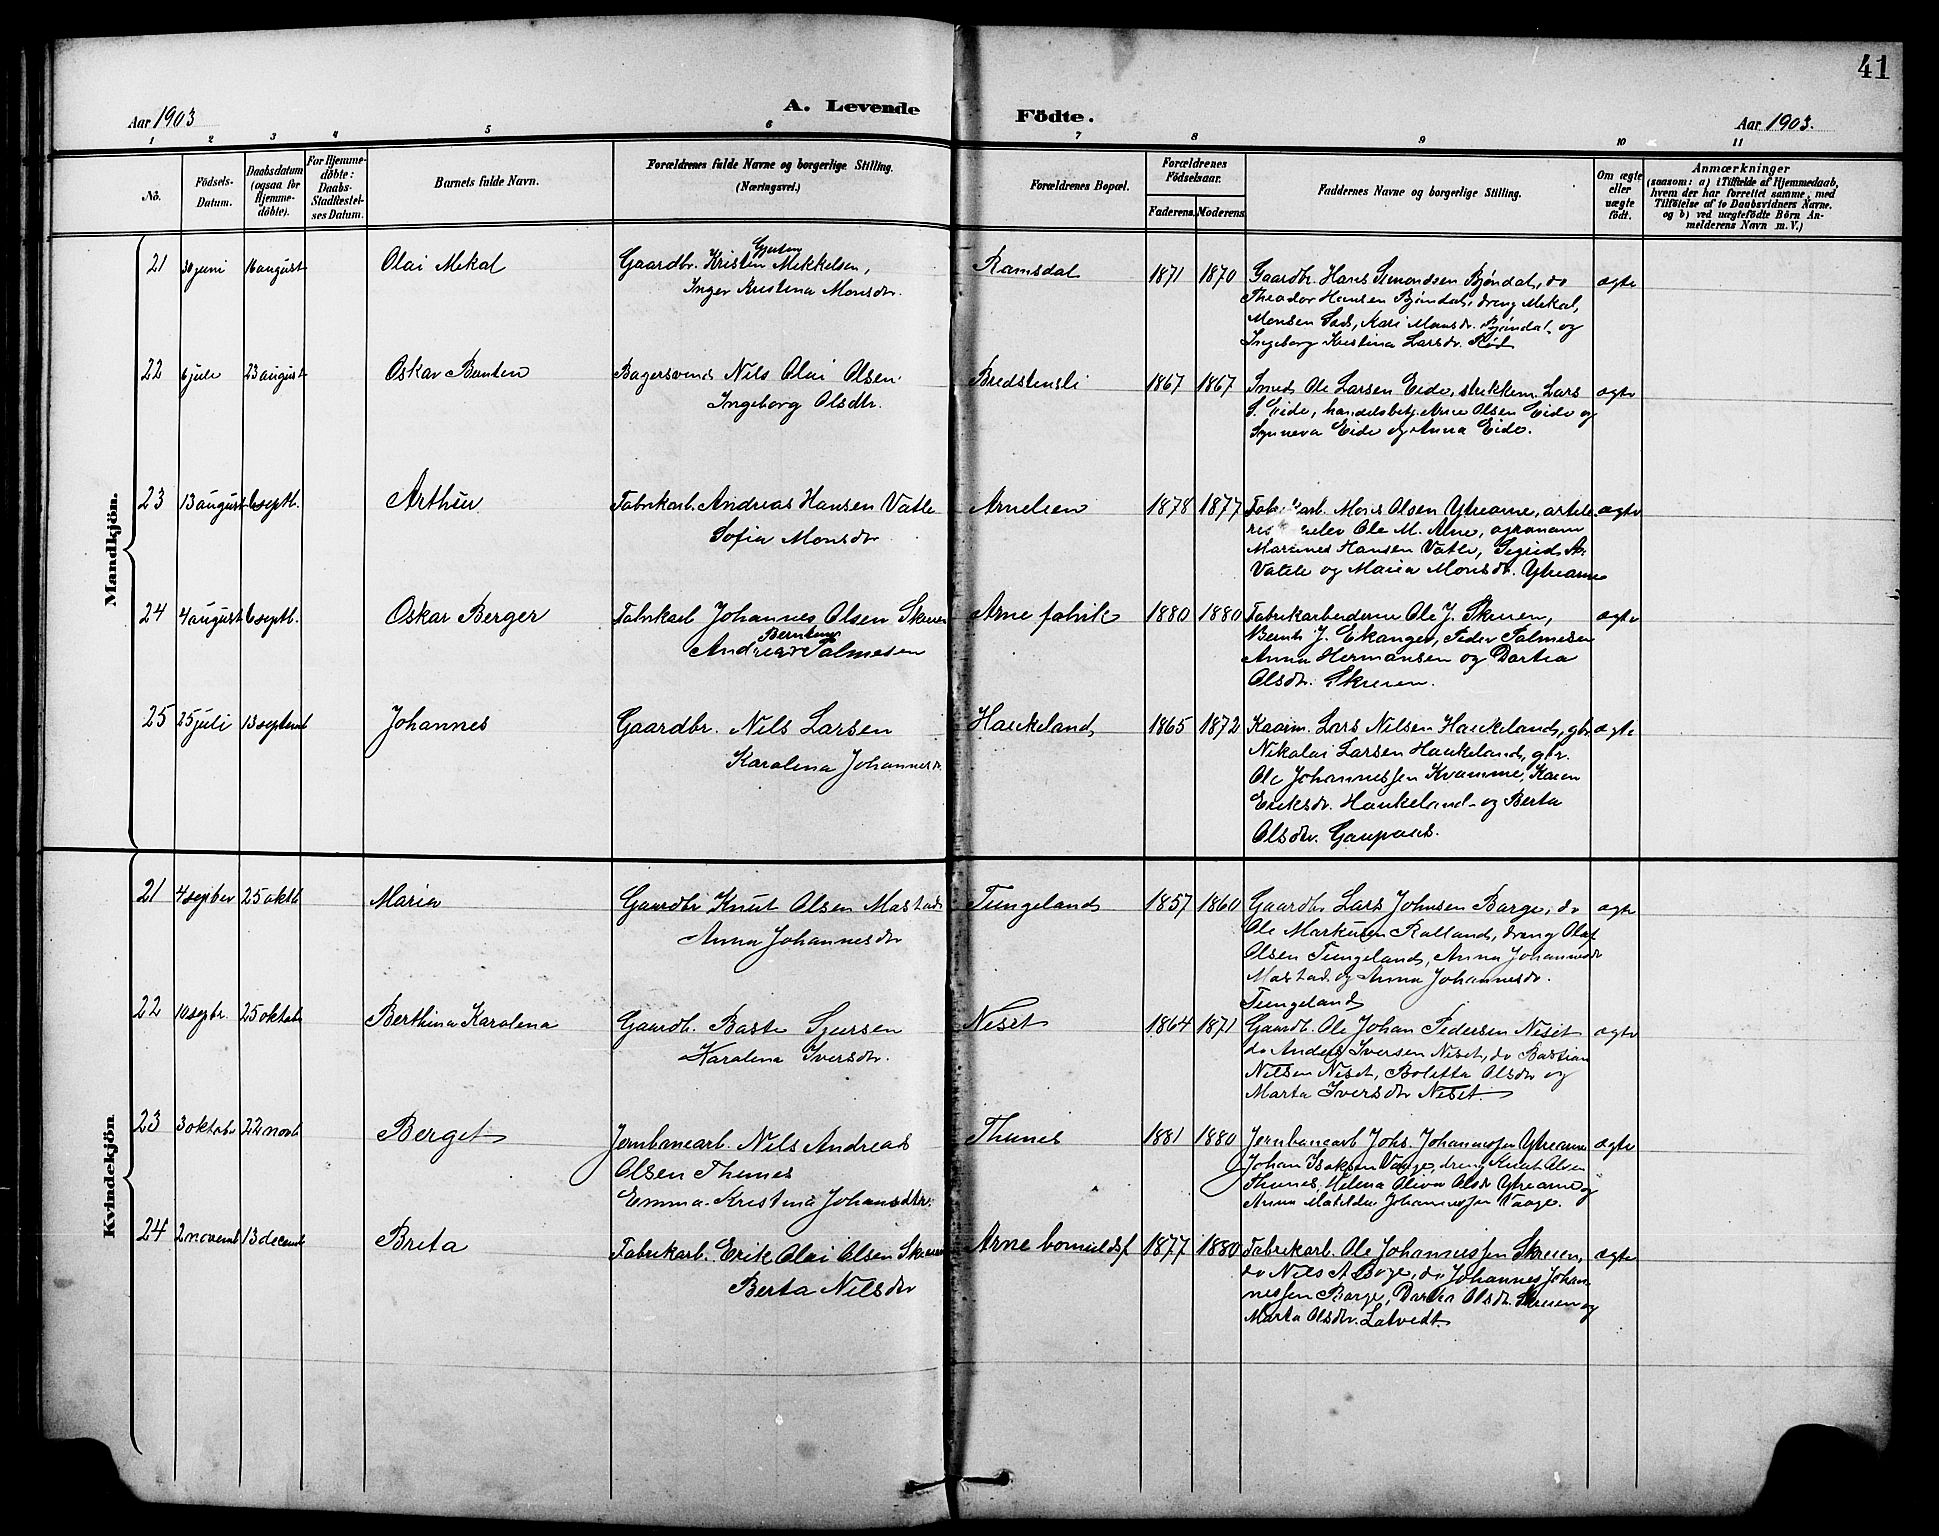 41
Aar 1903
A. Levende
Födte.
Aar 1903.
1 2 3 4 5 6 7 8 9 10 11
No.
Födsels-
Datum.
Daabsdatum
(ogsaa for
Hjemme-
döbte).
For Hjemme-
döbte:
Daabs-
Stadfæstel-
ses Datum.
Barnets fulde Navn.
Forældrenes fulde Navne og borgerlige Stilling.
(Næringsvei.)
Forældrenes Bopæl.
Forældrenes
Födselsaar.
Faderens. Moderens.
Faddernes Navne og borgerlige Stilling.
Om ægte
eller
uægte
födt.
Anmærkninger
(saasom: a) i Tilfælde af Hjemmedaab,
hvem der har forrettet samme, med
Tilföielse af to Daabsvidners Navne.
og b) ved uægtefödte Börn An-
melderens Navn m. V.)
Mandkjön.
21 30 juni 16 august Olai Mekal
Gaardbr. Kristen Gjerten Mekkelsen,
Inger Kristina Monsdr.
Ramsdal 1871 1870
Gaardbr. Hans Simondsen Bjøndal, do
Theodor Hansen Bjøndal, dreng Mekal
Monsen Sad, Kari Monsdr. Bjøndal og
Ingeborg Kristina Larsdr. Rød
ægte
22 6 jule 23 august Oskar Bernten
Bagersvend Nils Olai Olsen.
Ingeborg Olsdtr.
Bredstensli 1867 1867
Smed Ole Larsen Eide, strikkem. Lars
S. Eide, handelsbetj. Arne Olsen Eide og
Synneva Eide og Anna Eide.
ægte
23 13 august 6 septb. Arthur
Fabrikarb. Andreas Hansen Vatle
Sofia Monsdr
Arnelien 1878 1877
Fabrikarb. Mons Olsen Ytrearne,
Ole M. Arne, agronom
Martines Hansen Vatle, Sigrid A.
Vatle og Maria Monsdr. Ytrearne
ægte
24 4 august 6 septb. Oskar Berger
Fabrikarb Johannes Olsen Skreien
Andrea Berntine Salmesen
Arne fabrik 1880 1880
Fabrikarbeiderne Ole J. Skreien,
Bernt J. Ekanger, Peder Palmesen
Anna Hermansen og Dortea
Olsdr. Skreien.
ægte
25 25 juli 13 septemb Johannes
Gaardbr. Nils Larsen
Karolena Johannesdr
Haukeland 1865 1872
Kaarm. Lars Nilsen Haukeland, gbr
Nikolai Larsen Haukeland, gbr.
Ole Johannessen Kvamme, Karen
Eriksdr. Haukeland og Berta
Olsdr. Gaupaas.
ægte
Kvindekjön
21 4 septber 25 oktb Maria
Gaardbr Knut Olsen Mastad
Anna Johannesdr
Tungeland 1857 1860
Gaardbr Lars Johnsen Borge, do
Ole Markusen Rolland, dreng Olaf
Olsen Tungeland, Anna Johannesdr
Mastad og Anna Johannesdr.
Tungeland
ægte
22 10 septbr. 25 oktob Berthina Karolena
Gaardb. Baste Sjursen
Karolena Iversdr.
Neset 1864 1871
Gaardb. Ole Johan Pedersen Neset
do Anders Iversen Neset, do Bastian
Nilsen Neset, Boletta Olsdr og
Marta Iversdr Neset.
ægte
23 3 oktobr 22 novb Berget
Jernbanearb. Nils Andreas
Olsen Thunes
Emma Kristina Johansdtr.
Thunes 1881 1880
Jernbanearb Johs. Johannessen Ytrearne
Johan Isaksen Vaage, dreng Knut Olsen
Thunes, Helena Oliva Olsdr Ytrearne og
Anna Matilda Johannessen Vaage.
ægte
24 2 novemb 13 decemb Breta
Fabrikarb. Erik Olai Olsen Skreien
Berta Nilsdr
Arne bomuldsf 1877 1880
Fabrikarb. Ole Johannessen Skreien,
do Nils A Borge, do Johannes Johan-
nessen Borge, Dortea Olsdr. Skreien og
Marta Olsdr. Latvedt.
ægte